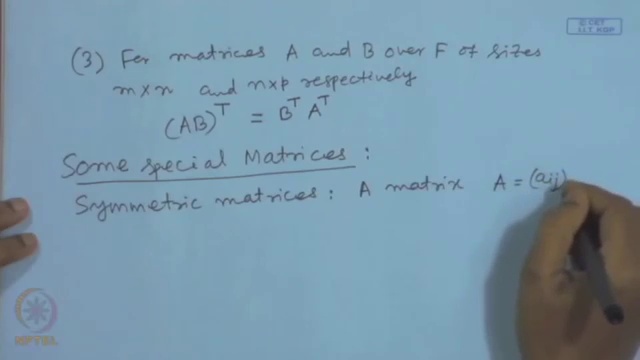 © CET
I.I.T. KGP
(3) For matrices A and B over F of sizes
m×n and n×p respectively
(AB)^T = B^T A^T
Some special Matrices :
Symmetric matrices : A matrix A = (aij)
NPTEL